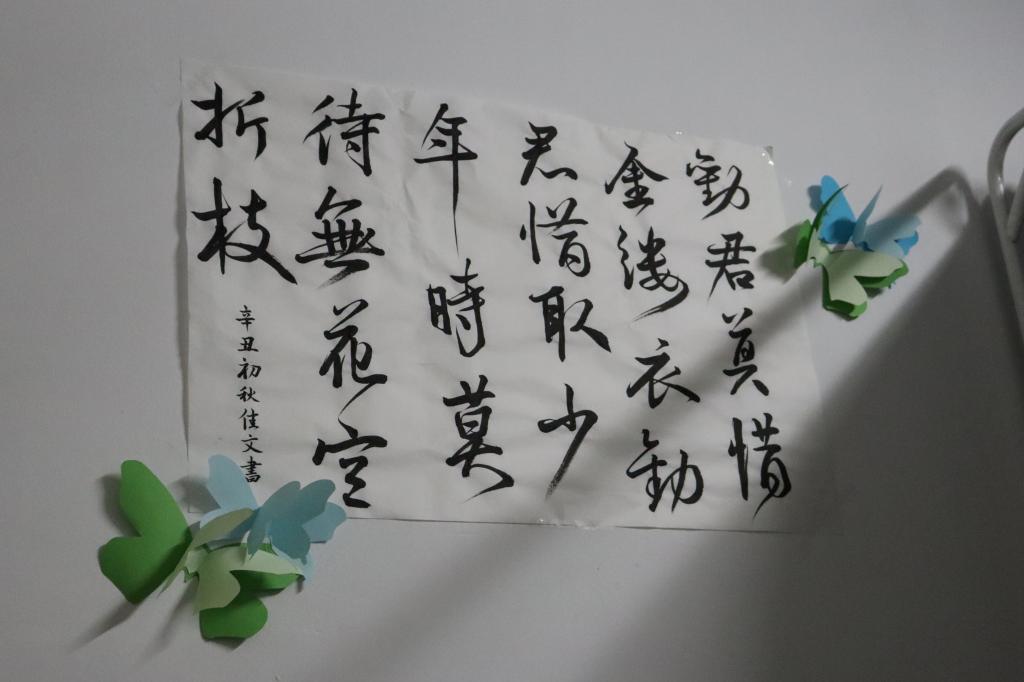 勸君莫惜
金縷衣勸
君惜取少
年時莫
待無花空
折枝
辛丑初秋佳文書